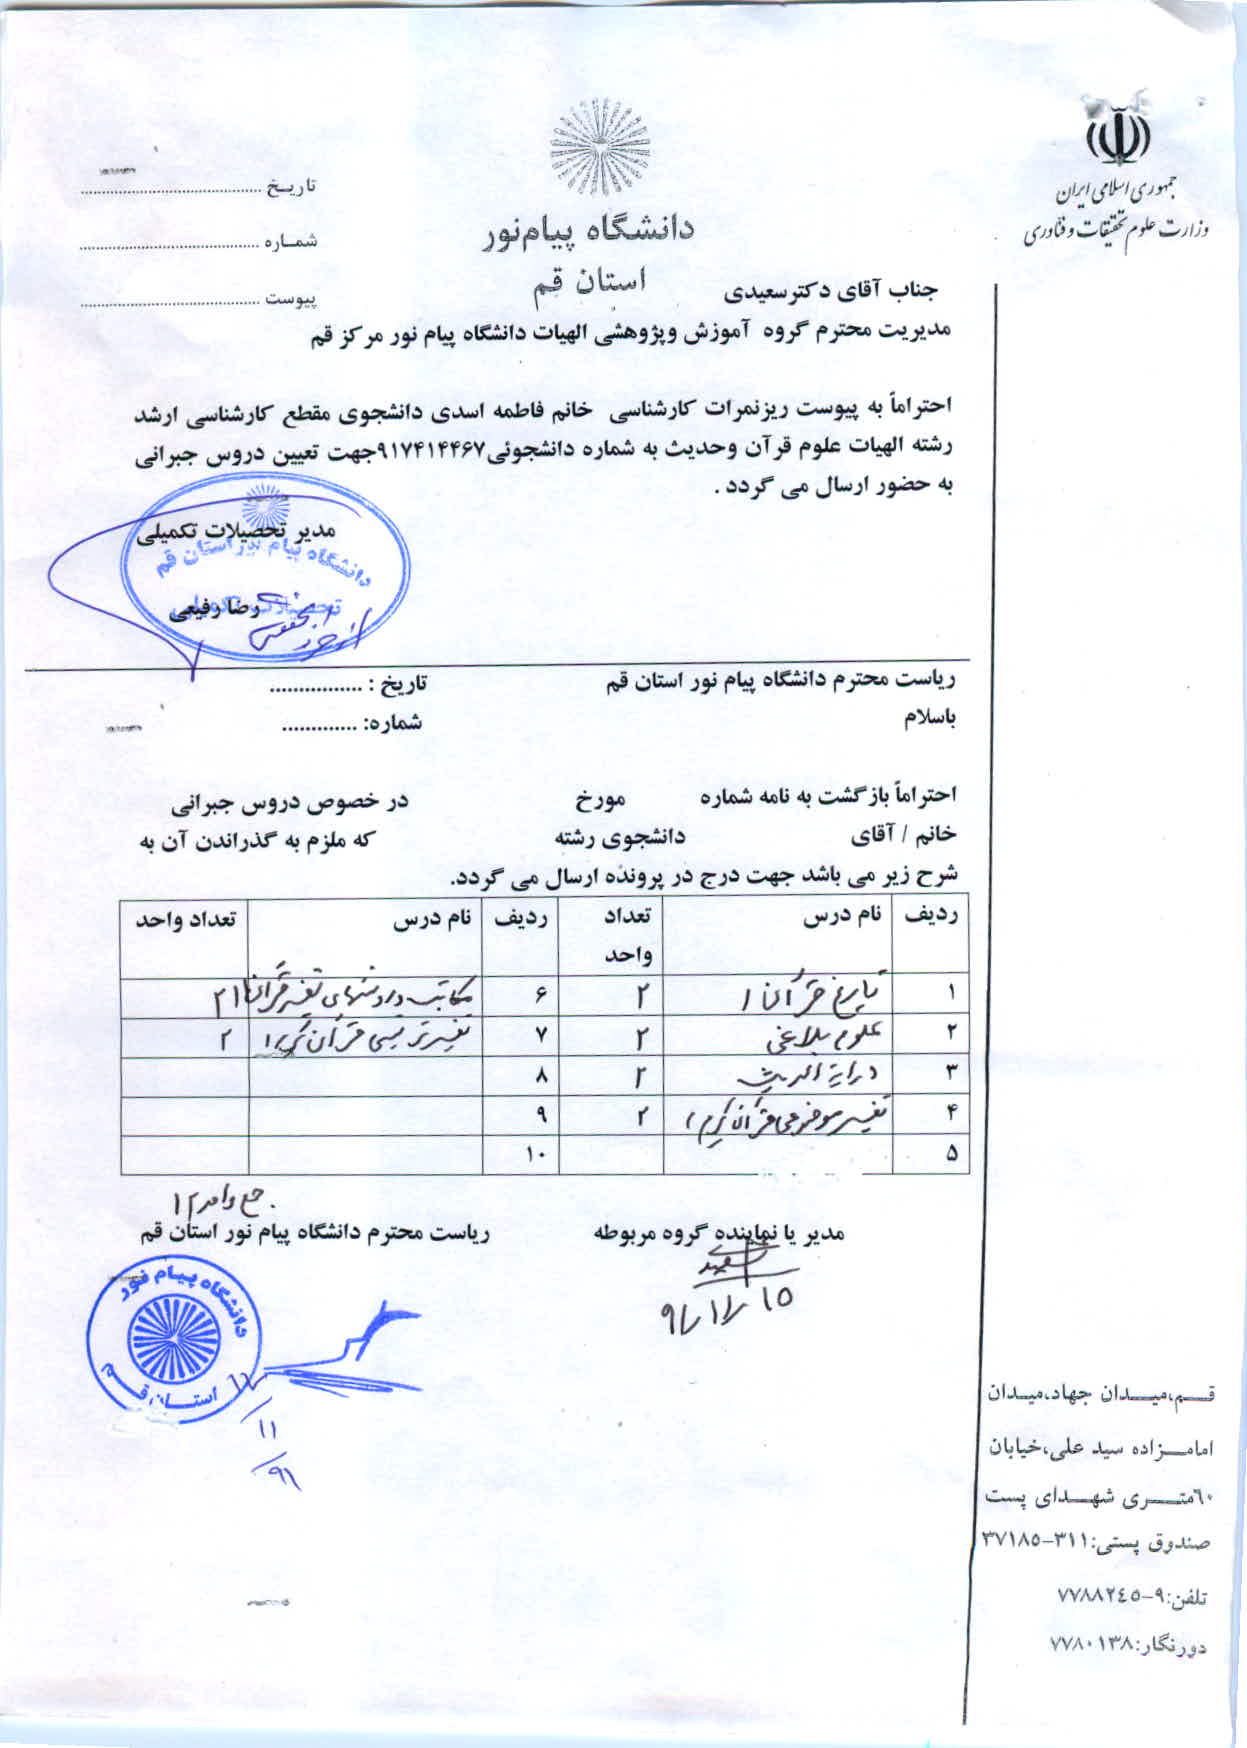 جمهوری اسلامی ایران
وزارت علوم تحقیقات و فناوری
دانشگاه پیام‌نور
استان قم
تاریـخ ........................................
شمـاره ........................................
پیوست ........................................
جناب آقای دکترسعیدی
مدیریت محترم گروه آموزش وپژوهشی الهیات دانشگاه پیام نور مرکز قم
احتراماً به پیوست ریزنمرات کارشناسی خانم فاطمه اسدی دانشجوی مقطع کارشناسی ارشد
رشته الهیات علوم قرآن وحدیث به شماره دانشجوئی۹۱۷۴۱۴۴۶۷جهت تعیین دروس جبرانی
به حضور ارسال می گردد .
مدیر تحصیلات تکمیلی
دانشگاه پیام نور استان قم
رضا رفیعی
تحصیلات تکمیلی
ریاست محترم دانشگاه پیام نور استان قم تاریخ : ................
باسلام شماره: .............
احتراماً بازگشت به نامه شماره مورخ در خصوص دروس جبرانی
خانم / آقای دانشجوی رشته که ملزم به گذراندن آن به
شرح زیر می باشد جهت درج در پرونده ارسال می گردد.
ردیف نام درس تعداد واحد ردیف نام درس تعداد واحد
۱ تاریخ قرآن ۱ ۲ ۶ مکاتب و روشهای تفسیر قرآن ۱ ۲
۲ علوم بلاغی ۲ ۷ تفسیر ترتیبی قرآن کریم ۱ ۲
۳ درایة الحدیث ۲ ۸
۴ تفسیر موضوعی قرآن کریم ۱ ۲ ۹
۵ ۱۰
جمع واحد ۱۲
مدیر یا نماینده گروه مربوطه ریاست محترم دانشگاه پیام نور استان قم
سعیدی
۹۱/۱۱/۱۵
دانشگاه پیام نور
استان قم
۱۱
۹۱
قـم،میـدان جهاد،میدان
امامـزاده سید علی،خیابان
٦٠متـری شهـدای پست
صندوق پستی:۳۱۱-۳۷۱۸۵
تلفن:۹-۷۷۸۸۲٤٥
دورنگار:۷۷۸۰۱۳۸